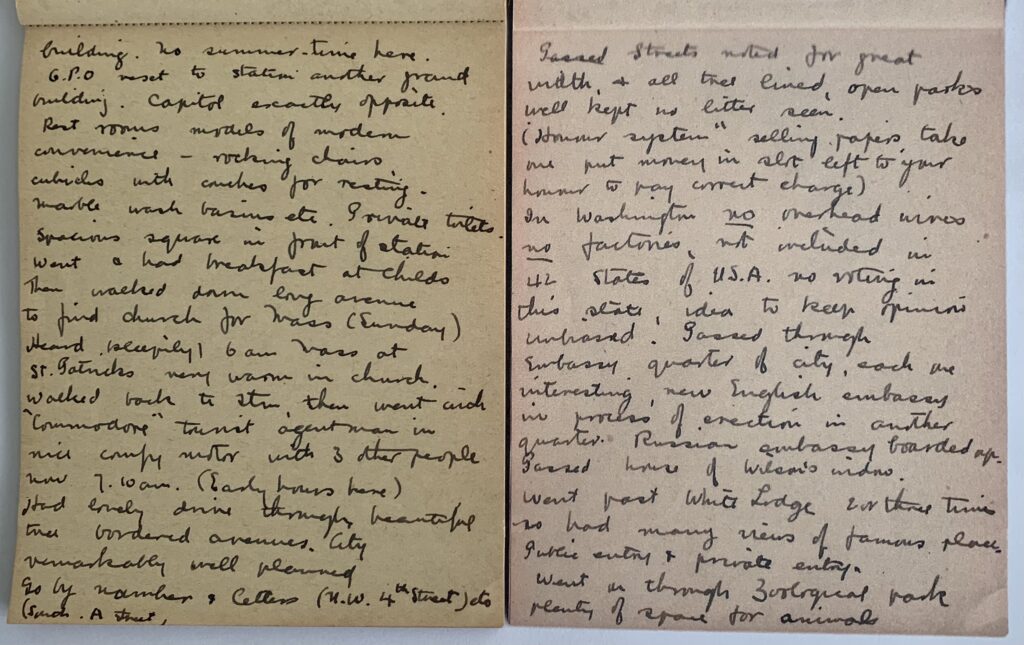 building. No summer-time here.
G.P.O next to station another grand
building. Capitol exactly opposite.
Rest rooms models of modern
convenience – rocking chairs
cubicles with couches for resting.
marble wash basins etc. Private toilets.
Spacious square in front of station
Went & had breakfast at Childs
Then walked down long avenue
to find church for Mass (Sunday)
Heard (sleepily) 6 am Mass at
St. Patricks very warm in church.
Walked back to stn, then went with
"Commodore" tourist agent man in
nice comfy motor with 3 other people
now 7.10 am. (Early hours here)
Had lovely drive through beautiful
tree bordered avenues. City
remarkably well planned
Go by number & letters (N.W. 4th Street) etc
(South. A Street,
Passed Streets noted for great
width, & all tree lined, open parks
well kept no litter seen.
("Honour system" selling papers take
one put money in slot left to your
honour to pay correct charge)
In Washington no overhead wires
no factories, not included in
42 States of U.S.A. no voting in
this state, idea to keep opinion
unbiased. Passed through
Embassy quarter of city, each one
interesting, new English embassy
in process of erection in another
quarter. Russian embassy boarded up.
Passed house of Wilson's widow.
Went past White Lodge 2 or three times
so had many views of famous place.
Public entry & private entry.
Went on through Zoological park
plenty of space for animals